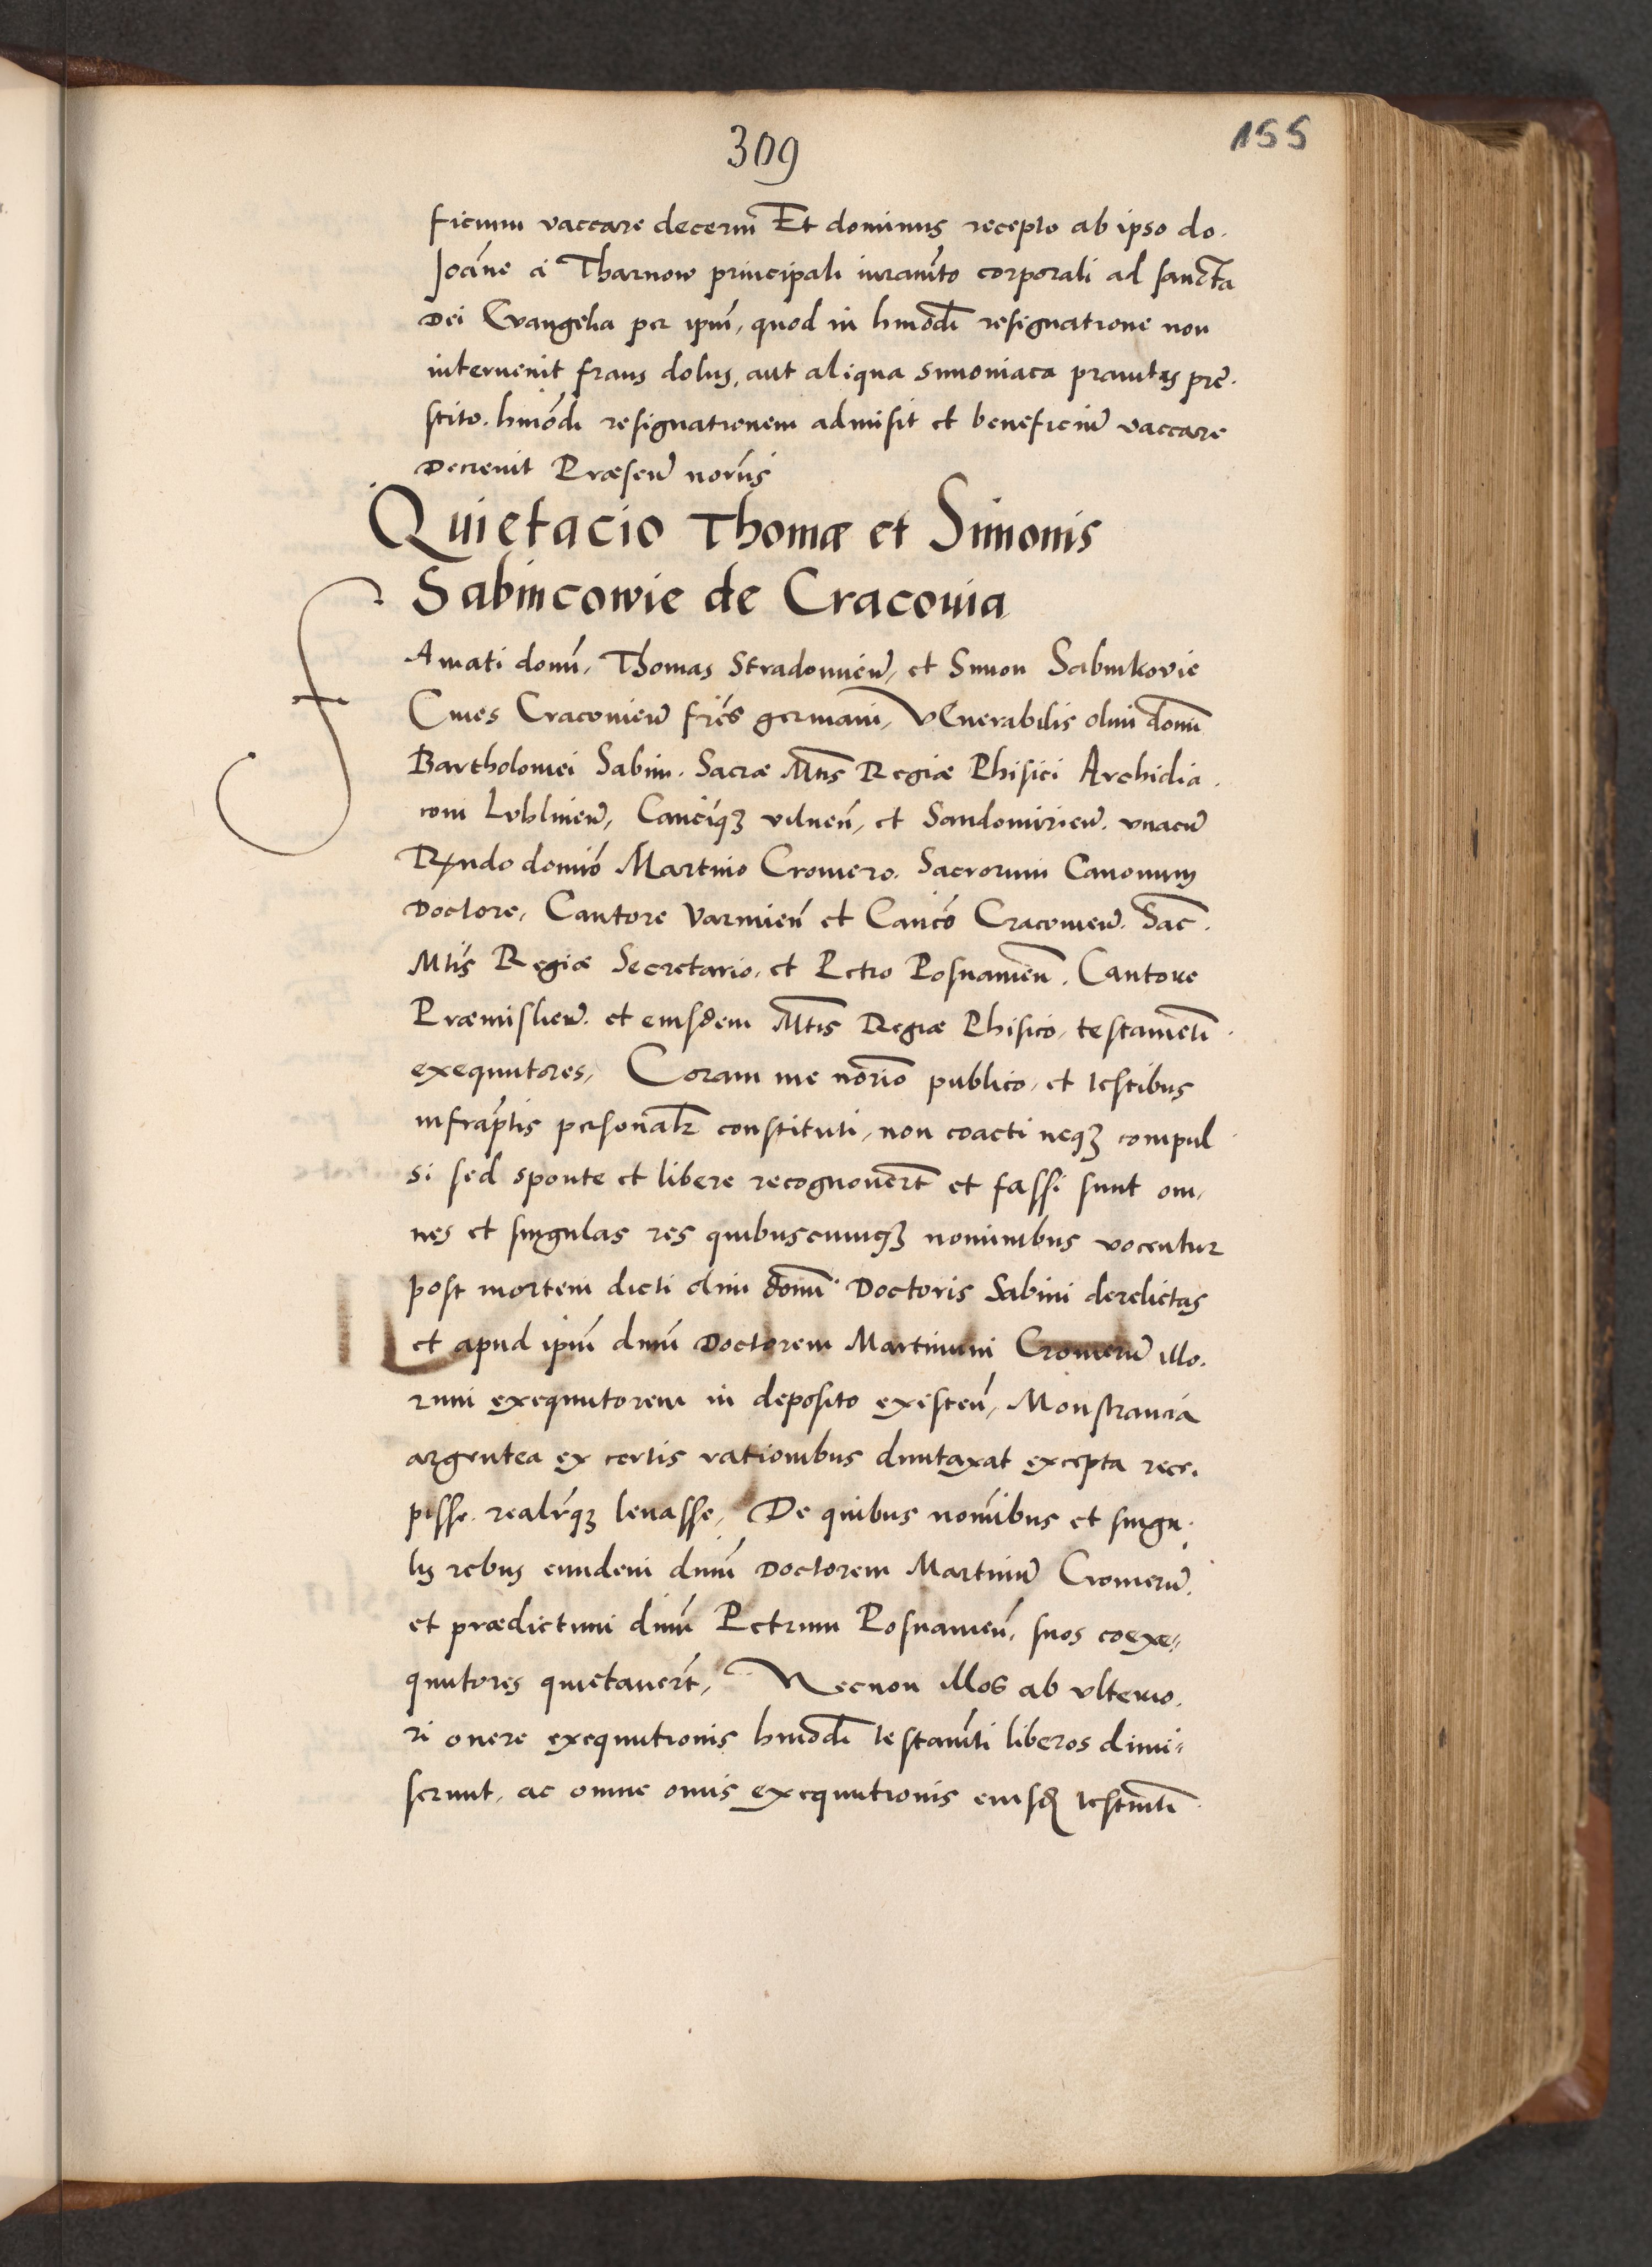 309
155
ficium vaccare decerñ Et dominus recepto ab ipso do.
Joãne a Tharnow principali iuramẽto corporali ad sancta
Dei Evangelia per ipm̃, quod in hmõdi resignatione non
intervenit fraus dolus, aut aliqua simoniaca prauitas pre.
stito. hmõdi resignationem admisit et beneficiũ vaccare
Decrevit Præsen̄ norijs
Quietacio Thomæ et Simonis
Sabincowie de Cracouia
Famati domi, Thomas Stradomien̄, et Simon Sabinkovie
Ciues Cracouien̄ frẽs germani, VEnerabilis olim domi
Bartholomei Sabini. Sacræ Mtis Regiæ Phisici Archidia.
coni Lublinen̄, Cancíqꝫ vilnen̄, et Sandomirien̄. vnacũ
Rṇdo domiõ Martino Cromero. Sacrorum Canonum
Doctore, Cantore Varmien̄ et Cancõ Cracouien̄. Sac.
Mtis Regiæ Secretario, et Petro Posnanien̄. Cantore
Præmislien̄. et eiusdem Mtis Regiæ Phisico, testamẽti.
exequutores, Coram me nõrio publico, et testibus
infraptis personalr constituti, non coacti neqꝫ compul
si sed sponte et libere recognouert et fassi sunt om,
nes et singulas res quibuscumqꝫ nominibus vocentur
post mortem dicti olim domi Doctoris Sabini derelictas
et apud ipm̃ dnm̃ Doctorem Martinum Cromerũ illo.
rum exequutorem in deposito existen̄, Monstrancia
argentea ex certis rationibus duntaxat excepta rece.
pisse. realrqꝫ leuasse, De quibus nomĩbus et singu.
lis rebus eundem dnm̃ Doctorem Martinũ Cromerũ.
et prædictum dnm̃ Petrum Posnanien̄. suos coexe,,
quutores quietauert, Necnon illos ab vlterio.
ri onere exequutionis hmõdi testamẽti liberos dimi,,
serunt, ac omne onus exequutionis eiusd testamẽti